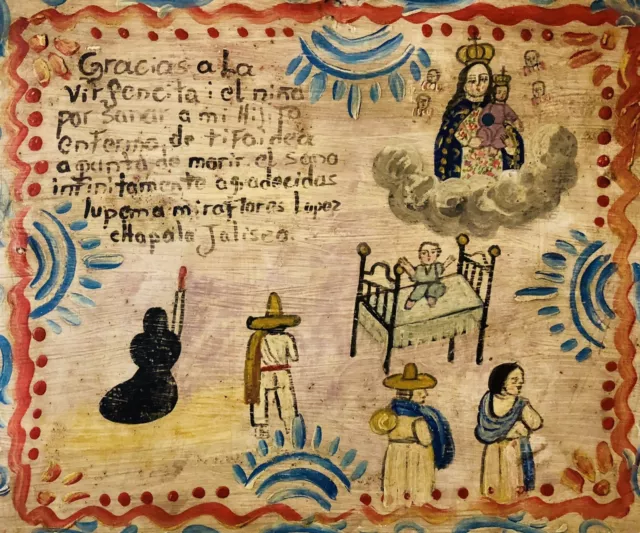 Gracias a La
virgencita i el niño
por sanar a mi Hijito
enfermo, de tifoidea
a punto de morir. el sano
infinitamente agradecidas
lupema miraflores lopez
chapala Jalisco.